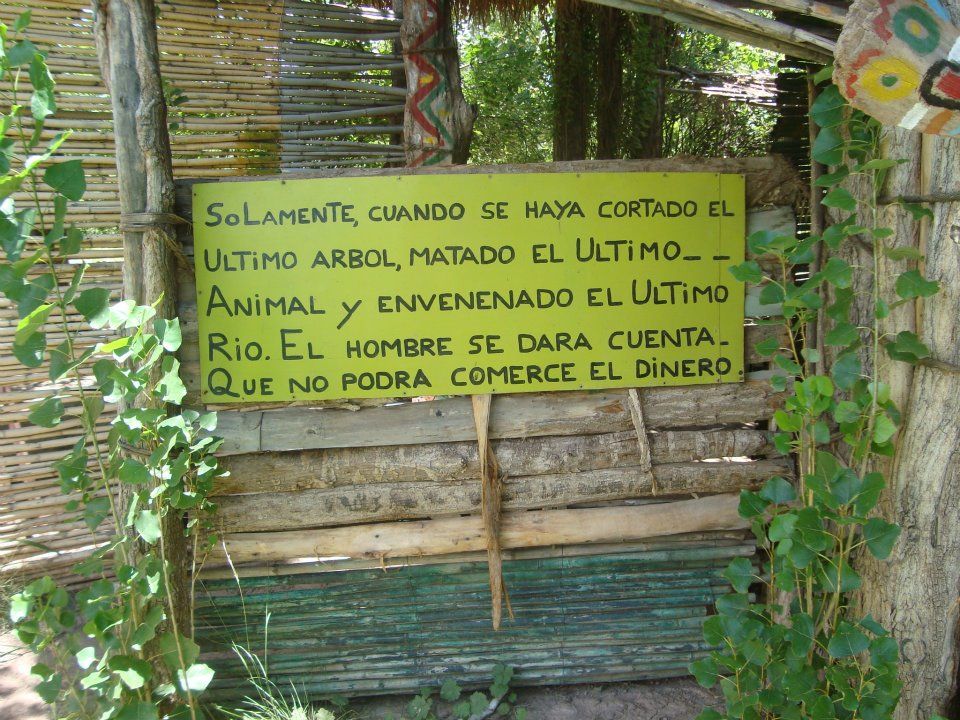 SoLAMENTE, CUANDO SE HAYA CORTADO EL
ULTIMO ARBOL, MATADO EL ULTIMO_ _
ANIMAL y ENVENENADO EL ULTIMO
RIO. EL HOMBRE SE DARA CUENTA_
QUE NO PODRA COMERCE EL DINERO.